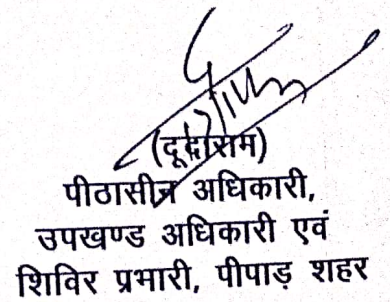 (दूदाराम)
पीठासीन अधिकारी,
उपखण्ड अधिकारी एवं
शिविर प्रभारी, पीपाड़ शहर